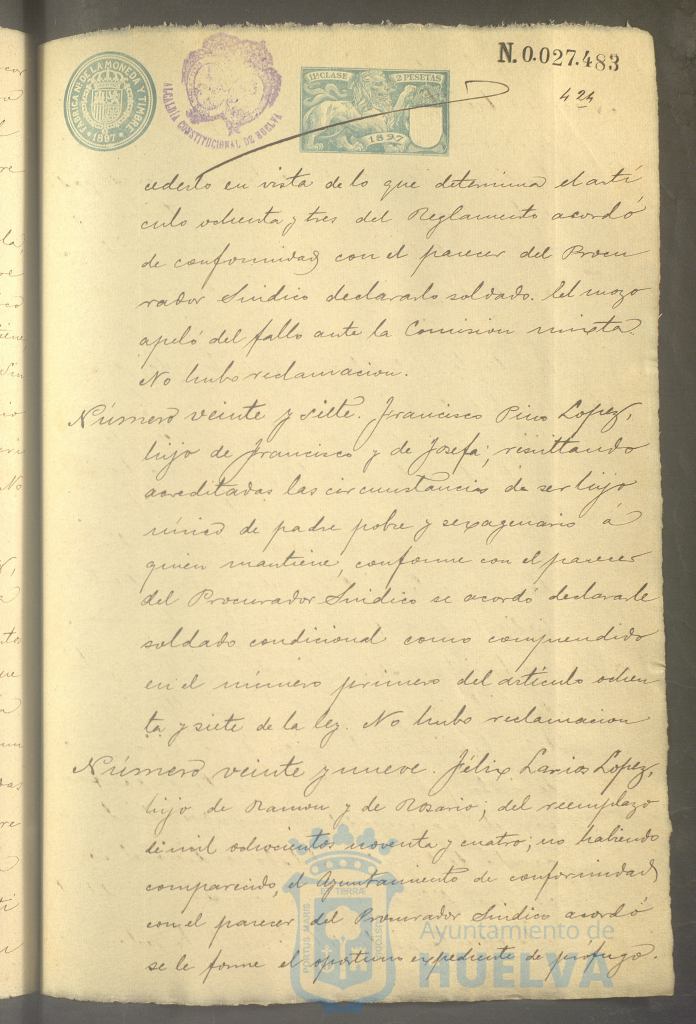 N.0.027.483
FABRICA NL. DE LA MONEDA Y TIMBRE
1897
ALCALDIA CONSTITUCIONAL DE HUELVA
11ª CLASE 2 PESETAS
1897
424
cederlo en vista de lo que determina el artí
culo ochenta y tres del Reglamento acordó
de conformidad con el parecer del Procu
rador Sindico declararlo soldado. El mozo
apeló del fallo ante la Comision mixta.
No hubo reclamacion.
Número veinte y siete. Francisco Pino Lopez,
hijo de Francisco y de Josefa; resultando
acreditadas las circunstancias de ser hijo
único de padre pobre y sexagenario á
quien mantiene, conforme con el parecer
del Procurador Sindico se acordó declararle
soldado condicional como comprendido
en el número primero del artículo ochen
ta y siete de la ley. No hubo reclamacion
Número veinte y nueve. Félix Larios Lopez,
hijo de Ramon y de Rosario; del reemplazo
de mil ochocientos noventa y cuatro; no habiendo
comparecido, el Ayuntamiento de conformidad
con el parecer del Procurador Sindico acordó
se le forme el oportuno expediente de prófugo.
Ayuntamiento de
HUELVA